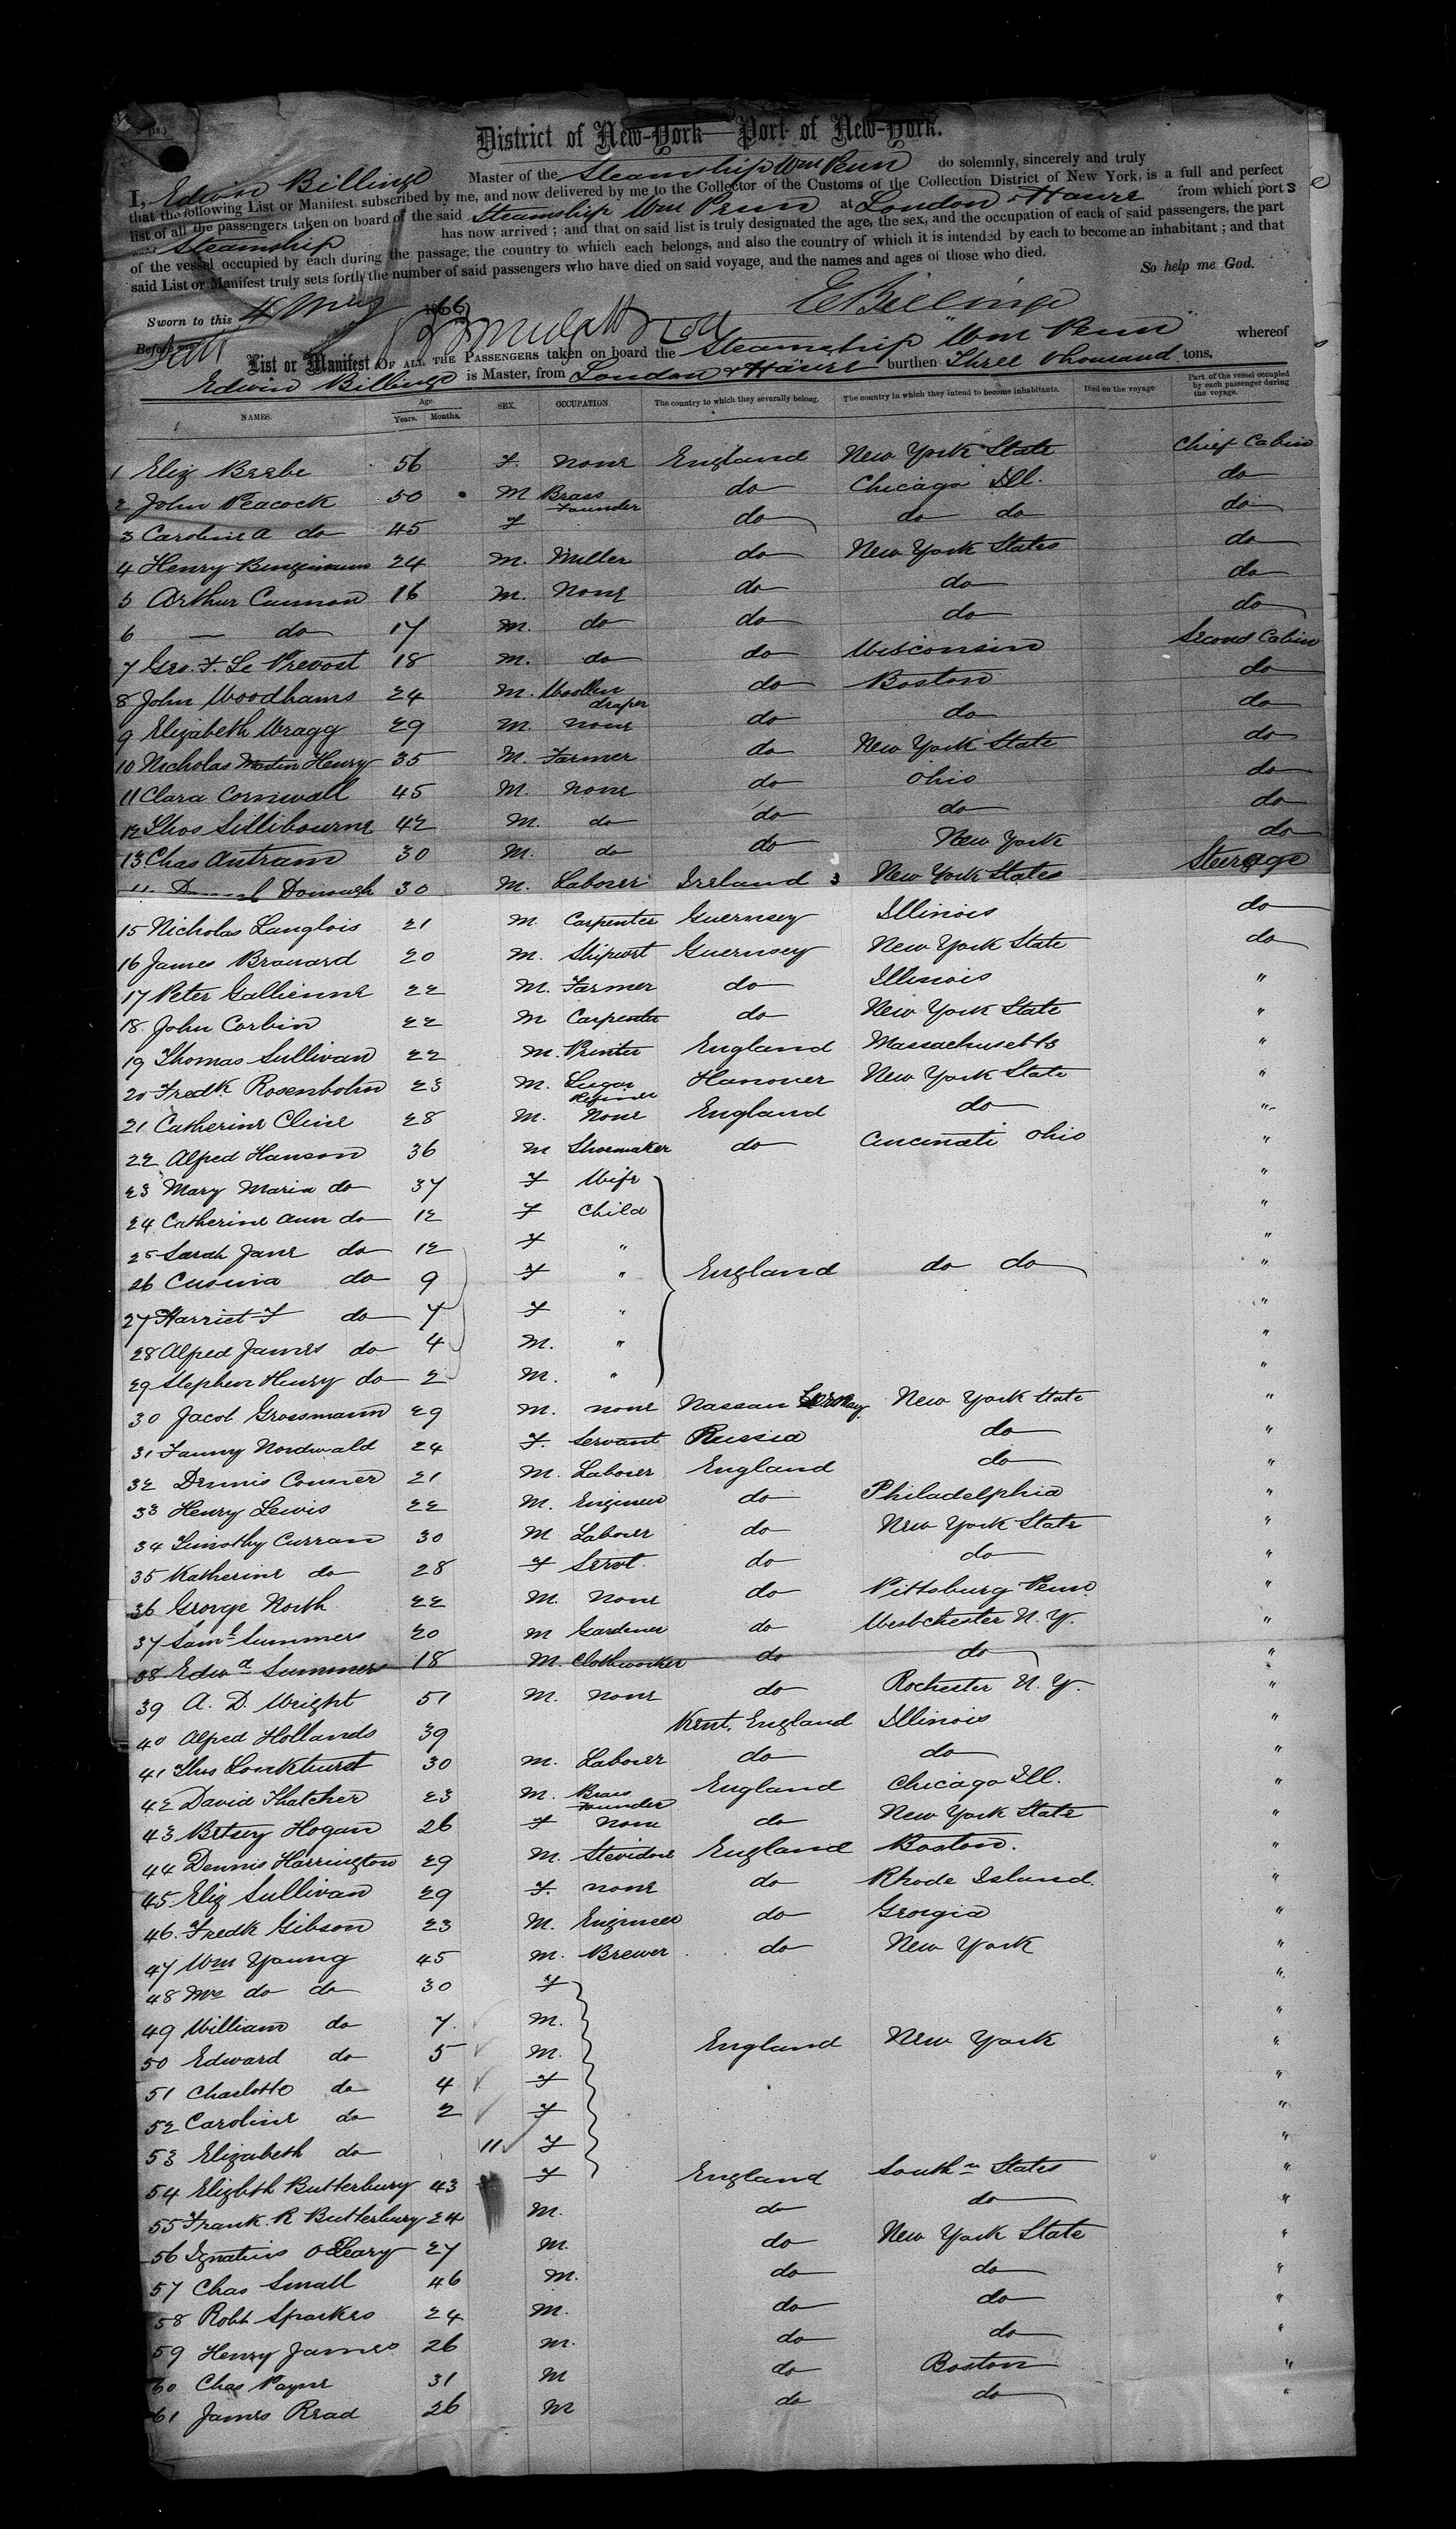 (18.)
District of New-York—Port of New-York.
I, Edwin Billinge Master of the Steamship Wm Penn do solemnly, sincerely and truly
that the following List or Manifest, subscribed by me, and now delivered by me to the Collector of the Customs of the Collection District of New York, is a full and perfect
list of all the passengers taken on board of the said Steamship Wm Penn at London & Havre from which ports
Steamship has now arrived; and that on said list is truly designated the age, the sex, and the occupation of each of said passengers, the part
of the vessel occupied by each during the passage; the country to which each belongs, and also the country of which it is intended by each to become an inhabitant; and that
said List or Manifest truly sets forth the number of said passengers who have died on said voyage, and the names and ages of those who died.
So help me God.
Sworn to this 4 May 1866
E Billinge
Before me
List or Manifest OF ALL THE PASSENGERS taken on board the Steamship "Wm Penn" whereof
Edwin Billinge is Master, from London & Havre burthen Three thousand tons.
NAMES. Age. Years. Months. SEX. OCCUPATION. The country to which they severally belong. The country in which they intend to become inhabitants. Died on the voyage Part of the vessel occupied by each passenger during the voyage.
1 Eliz Beebe 56 F. None England New York State Chief Cabin
2 John Peacock 50 M Brass Founder do Chicago Ill. do
3 Caroline A do 45 F do do do do
4 Henry 24 M. Miller do New York States do
5 Arthur Cannon 16 M. None do do do
6 — do 17 M. do do do do
7 Geo. F. Le Prevost 18 M. do do Wisconsin Second Cabin
8 John Woodhams 24 M. Woollen draper do Boston do
9 Elizabeth Wragg 29 M. none do do do
10 Nicholas Martin Henry 35 M. Farmer do New York State do
11 Clara Cornwall 45 M. none do Ohio do
12 Thos Sillibourne 42 M. do do do do
13 Chas Antram 30 M. do do New York do
30 M. Laborer Ireland New York States Steerage
15 Nicholas Langlois 21 M. Carpenter Guernsey Illinois do
16 James Brouard 20 M. Shipwrt Guernsey New York State do
17 Peter Gallienne 22 M. Farmer do Illinois "
18. John Corbin 22 M Carpenter do New York State "
19 Thomas Sullivan 22 M. Printer England Massachusetts "
20 Fredk. Rosenbohm 23 M. Sugar Refiner Hanover New York State "
21 Catherine Cline 28 M. None England do "
22 Alfred Hanson 36 M Shoemaker do Cincinati Ohio "
23 Mary Maria do 37 F Wife "
24 Catherine Ann do 12 F Child "
25 Sarah Jane do 12 F " "
26 do 9 F " England do do "
27 Harriet F do 7 F " "
28 Alfred James do 4 M. " "
29 Stephen Henry do 2 M. " "
30 Jacob Grossmann 29 M. none Nassau New York State "
31 Fanny Nordwald 24 F. Servant Russia do "
32 Dennis Conner 21 M. Laborer England do "
33 Henry Lewis 22 M. Engineer do Philadelphia "
34 Timothy Curran 30 M Laborer do New York State "
35 Katherine do 28 F Servt. do do "
36 George North 22 M. None do Pittsburg Penn. "
37 Saml Summers 20 M Gardener do Westchester N. Y. "
38 Edwd Summers 18 M. Clothworker do do "
39 A. D. Wright 51 M. none do Rochester N. Y. "
40 Alfred Hollands 39 Kent, England Illinois "
41 Thos Lonkhurst 30 M. Laborer do do "
42 David Thatcher 23 M. Brass Founder England Chicago Ill. "
43 Betsey Hogan 26 F None do New York State "
44 Dennis Harrington 29 M. Stevidore England Boston. "
45. Eliz Sullivan 29 F. none do Rhode Island. "
46. Fredk Gibson 23 M. Engineer do Georgia "
47 Wm Young 45 M. Brewer do New York "
48 Mrs do do 30 F "
49 William do 7. M. "
50 Edward do 5 M. England New York "
51 Charlotte do 4 F "
52 Caroline do 2 F "
53 Elizabeth do 11 F "
54 Elizbth Butterbury 43 F England Southn States "
55 Frank. R Butterbury 24 M. do do "
56 Ignatius O'Leary 27 M. do New York State "
57 Chas Small 46 M. do do "
58 Robt Sparkes 24 M. do do "
59 Henry James 26 M. do do "
60 Chas Payne 31 M do Boston "
61 James Read 26 M do do "